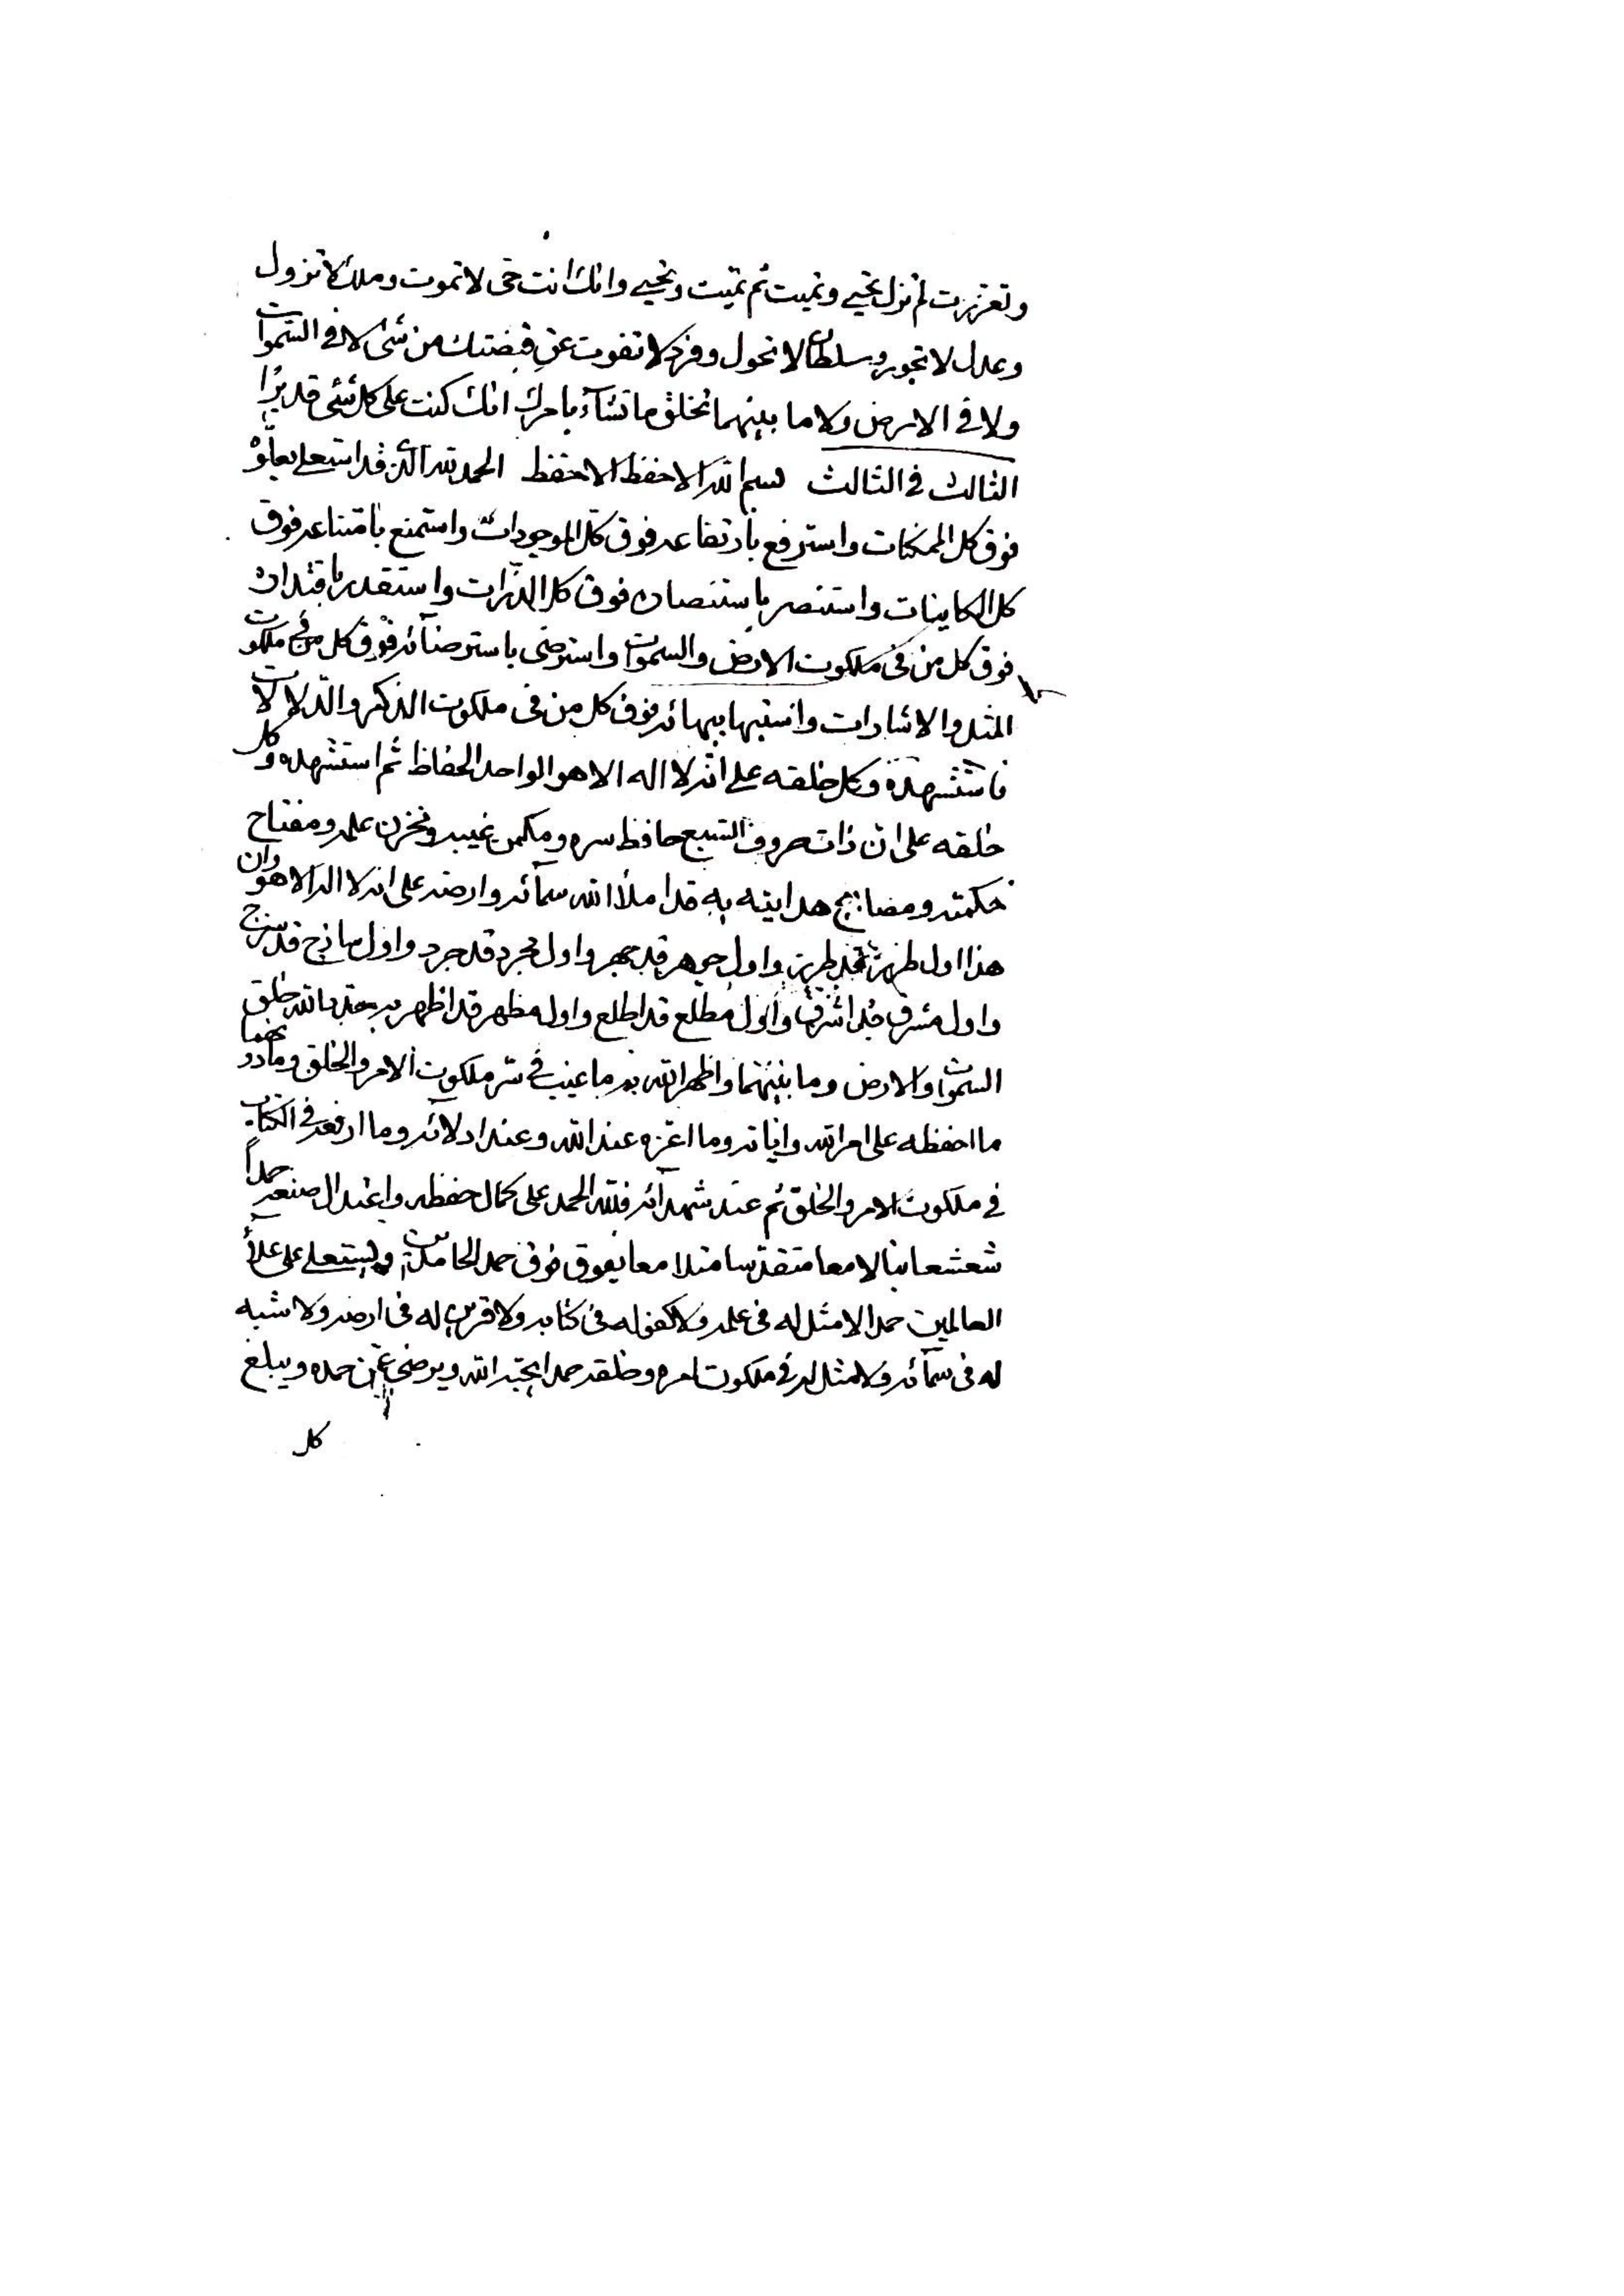 وتعززت لم تزل تحيي وتميت ثم تميت وتحيي وانك انت حي لا تموت وملك لا تزول
وعدل لا تجور وسلطان لا تحول وفرد لا تفوت عن قبضتك من شئ لا في السموات
ولا في الارض ولا ما بينهما تخلق ما تشآء بامرك انك كنت على كل شئ قديرا
الثالث في الثالث بسم الله الاحفظ الاحفظ الحمد لله الذي قد استعلى بعلوه
فوق كل الممكنات واسترفع بارتفاعه فوق كل الموجودات واستمنع بامتناعه فوق
كل الكاينات واستنصر باستنصاره فوق كل الذرات واستقدر باقتداره
فوق كل من في ملكوت الارض والسموات واسترضى باسترضآئه فوق كل من في ملكوت
المثل والاشارات واستبها ببهائه فوق كل من في ملكوت الذكر والدلالات
فاستشهده وكل خلقه على انه لا اله الا هو الواحد الحفاظ ثم استشهده وكل
خلقه على ان ذات حروف السبع حافظ سره ومكمن غيبه ومخزن علمه ومفتاح
حكمته ومصابيح هدايته به قد املأ الله سمآئه وارضه على انه لا اله الا هو وان
هذا اول طرز قد طرز واول جوهر قد جوهر واول مجرد قد جرد واول ساذج قد سزج
واول مشرق قد اشرق واول مطلع قد اطلع واول مظهر قد اظهر به الله خلق
السموات والارض وما بينهما واظهر الله به ما غيب في سر ملكوت الامر والخلق وما دونهما
ما احفظه على امر الله واياته وما اعزه عند الله وعند ادلائه وما ارفعه في الكتاب
في ملكوت الامر والخلق ثم عند شهدآئه فلله الحمد على كمال حفظه واعتدال صنعه حمداً
شعشعانيا لامعا متقدسا متلامعا يفوق فوق حمد الحامدين ويستعلي على علآء
العالمين حمدا لا مثل له في علمه ولا كفو له في كتابه ولا قرين له في ارضه ولا شبه
له في سمآئه ولا مثل له في ملكوت امره وخلقه حمدا يحبه الله ويرضى عن حمده ويبلغ
كل